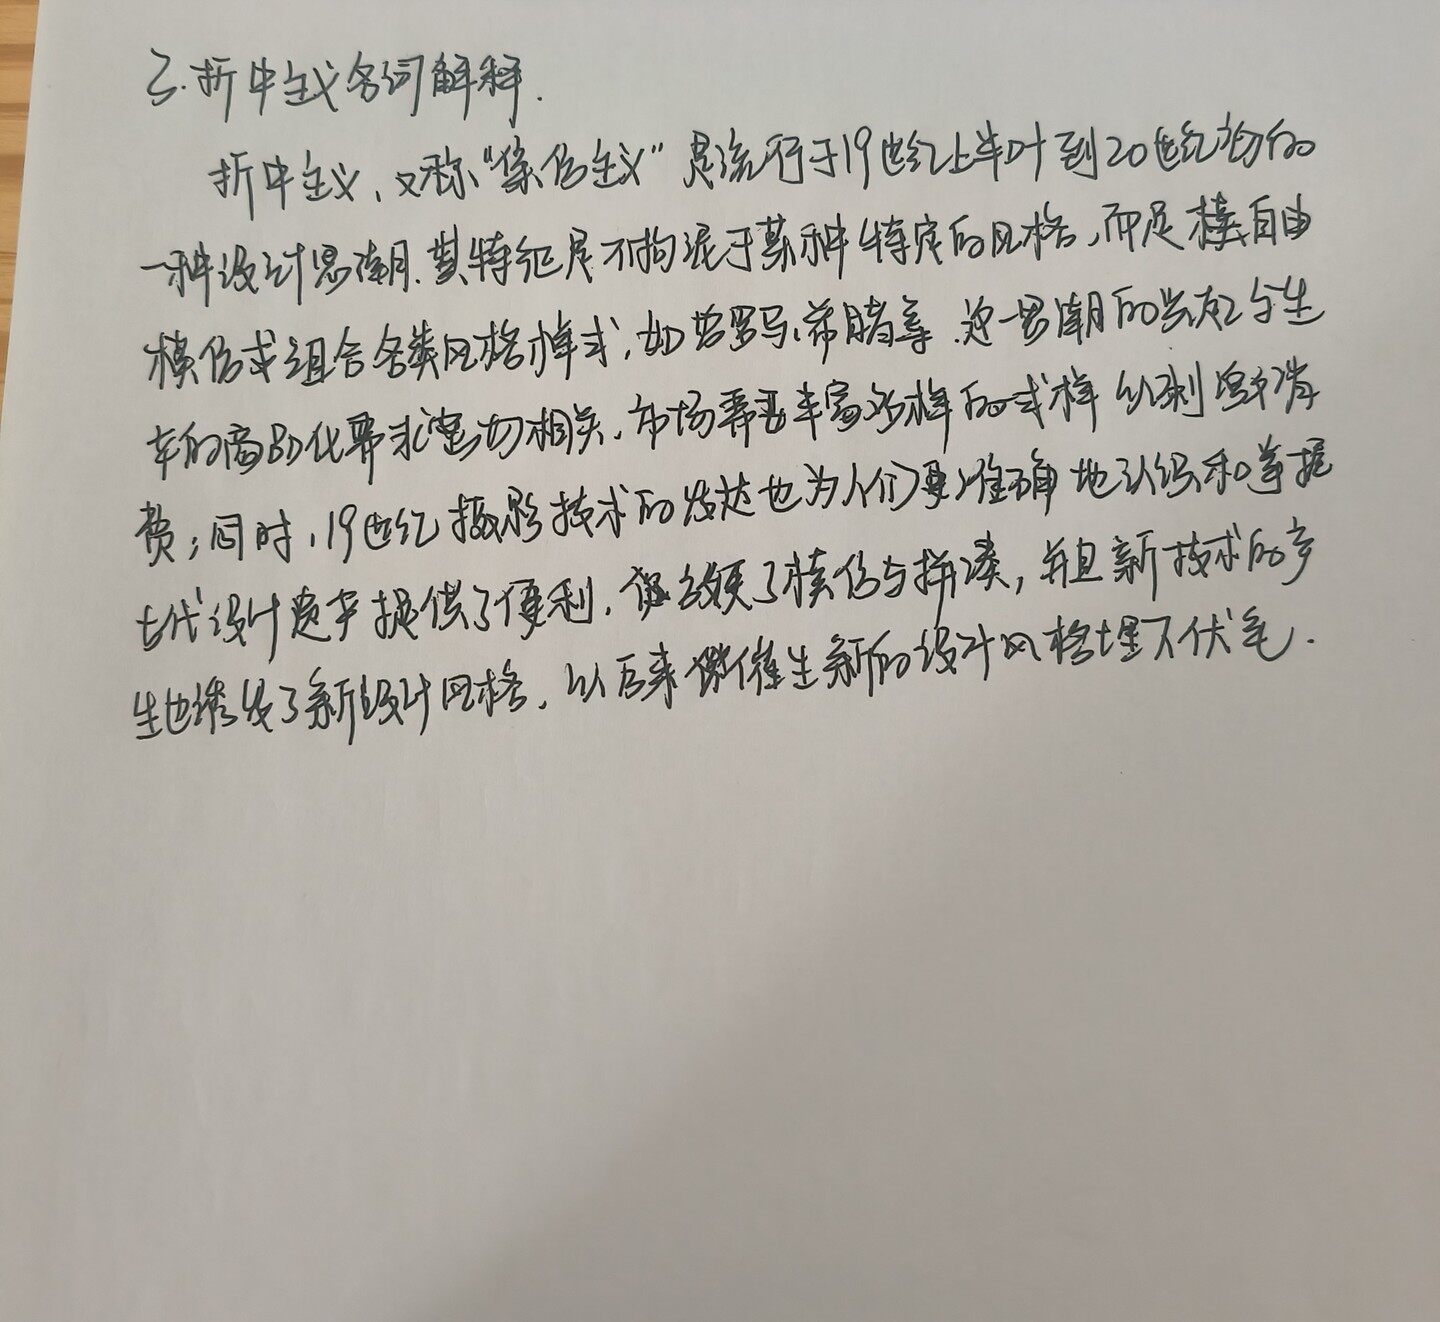 3.折中主义名词解释.
折中主义,又称"集仿主义"是流行于19世纪上半叶到20世纪初的
一种设计思潮.其特征是不拘泥于某种特定的风格,而是自由
模仿或组合各类风格样式,如古罗马、希腊等.这一思潮的兴起与生
车的商品化要求密切相关,市场需要丰富多样的式样以刺激消
费;同时,19世纪摄影技术的发达也为人们更准确地认识和掌握
古代设计遗产提供了便利,了模仿与拼凑,并且新技术的产
生也诱发了新设计风格,以后来催生新的设计风格埋下伏笔.